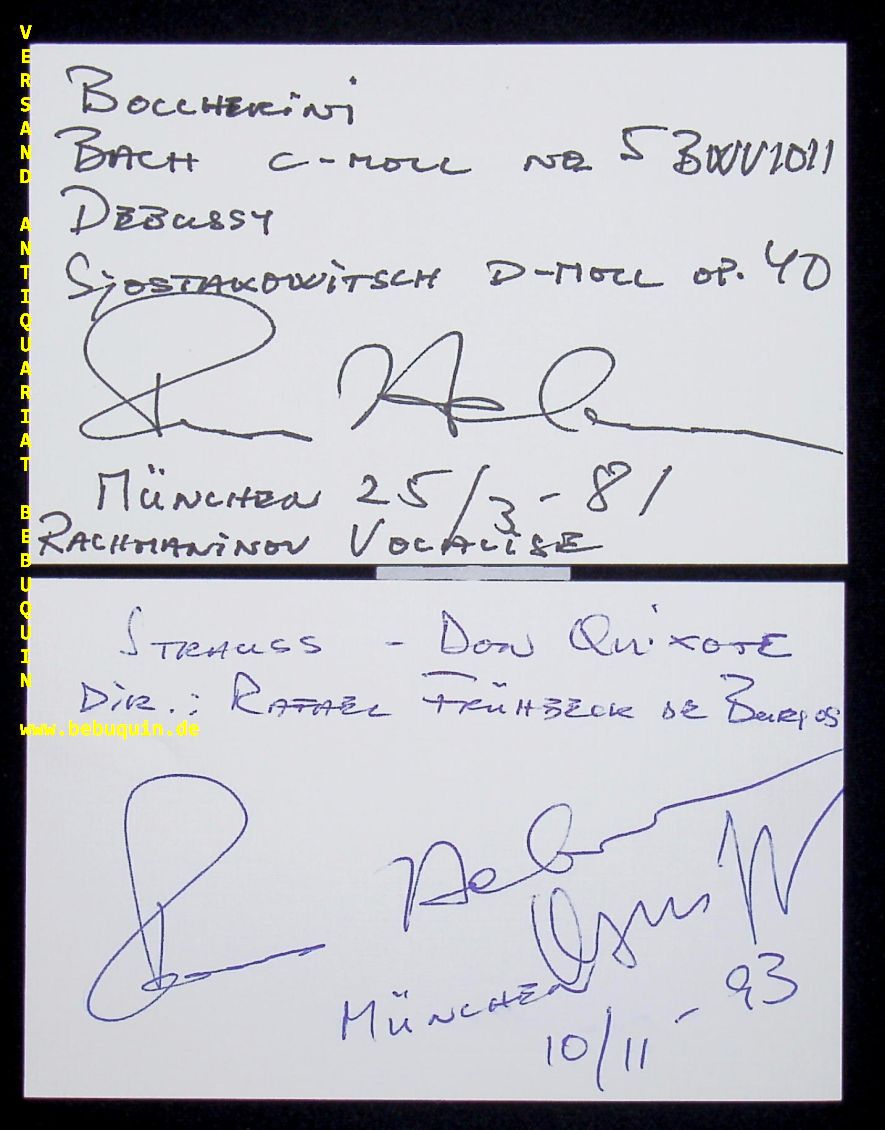 VERSAND ANTIQUARIAT BEBUQUIN
BOCCHERINI
BACH C-MOLL NR 5 BWV1011
DEBUSSY
SJOSTAKOWITSCH D-MOLL OP. 40
MÜNCHEN 25/3-81
RACHMANINOV VOCALISE
STRAUSS - DON QUIXOTE
DIR.: RAFAEL FRÜHBECK DE BURGOS
www.bebuquin.de
MÜNCHEN
10/11-93